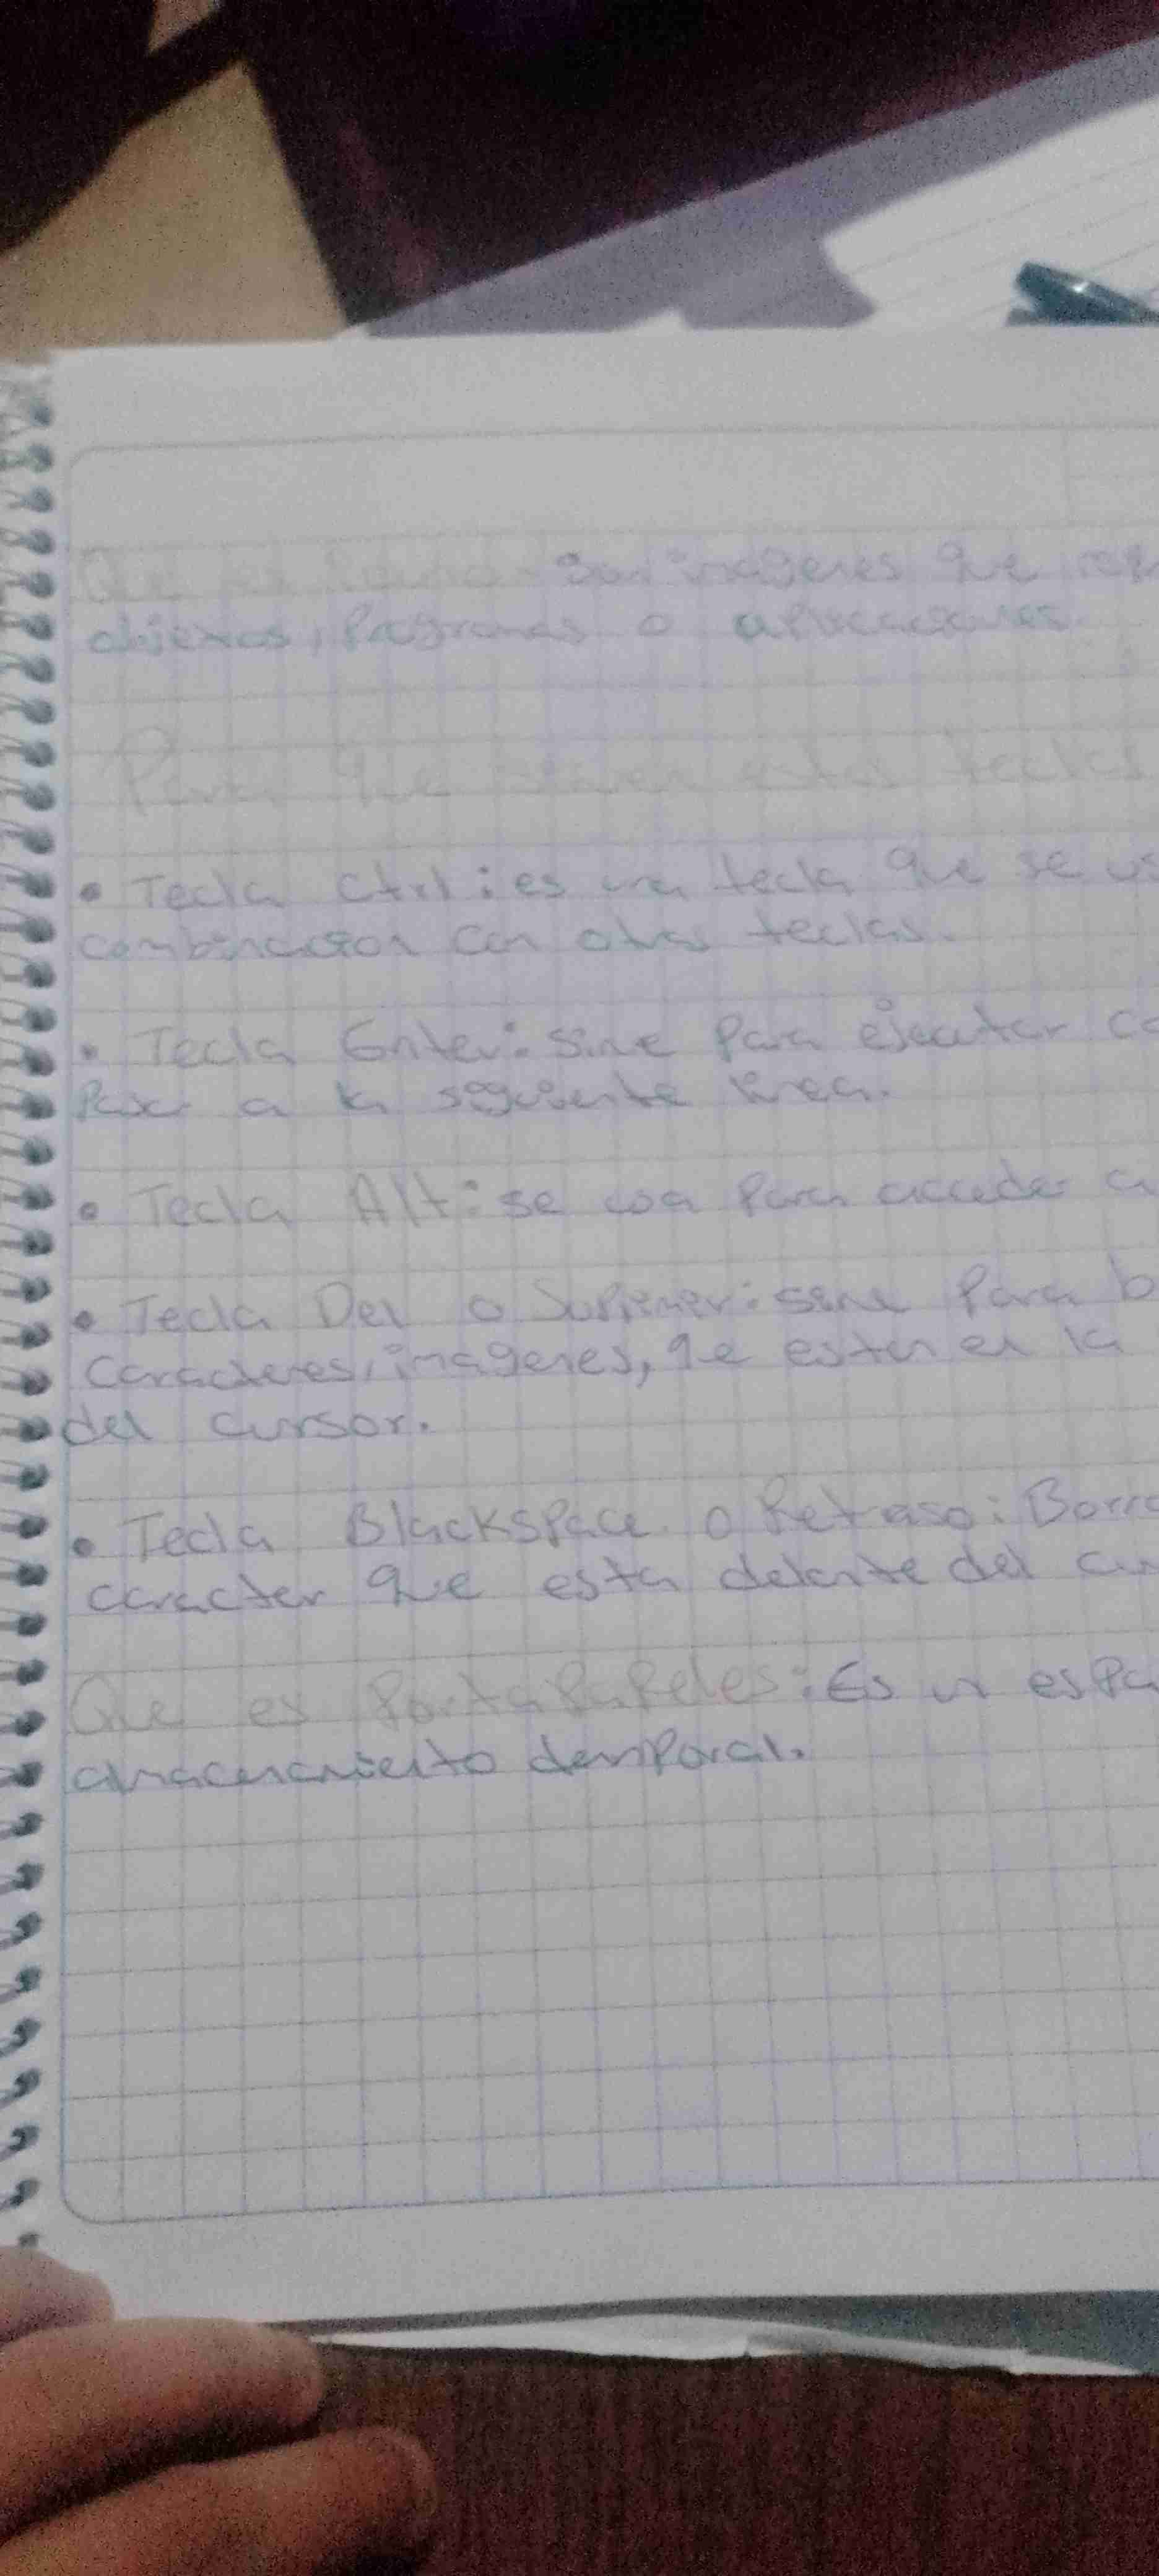 Que es Icono: Son imagenes que
objetos, Programas o aplicaciones.
Para que sirven estas teclas
• Tecla Ctrl: es una tecla que se
combinacion con otras teclas.
• Tecla Enter: sirve Para ejecutar
Pasar a la siguiente linea.
• Tecla Alt: se usa Para acceder a
• Tecla Del o Suprimer: sirve Para
caracteres, imagenes, que estan en la
del cursor.
• Tecla Blackspace o Retraso:
caracter que esta delante del
Que es PortaPaPeles: Es un
almacenamiento temporal.